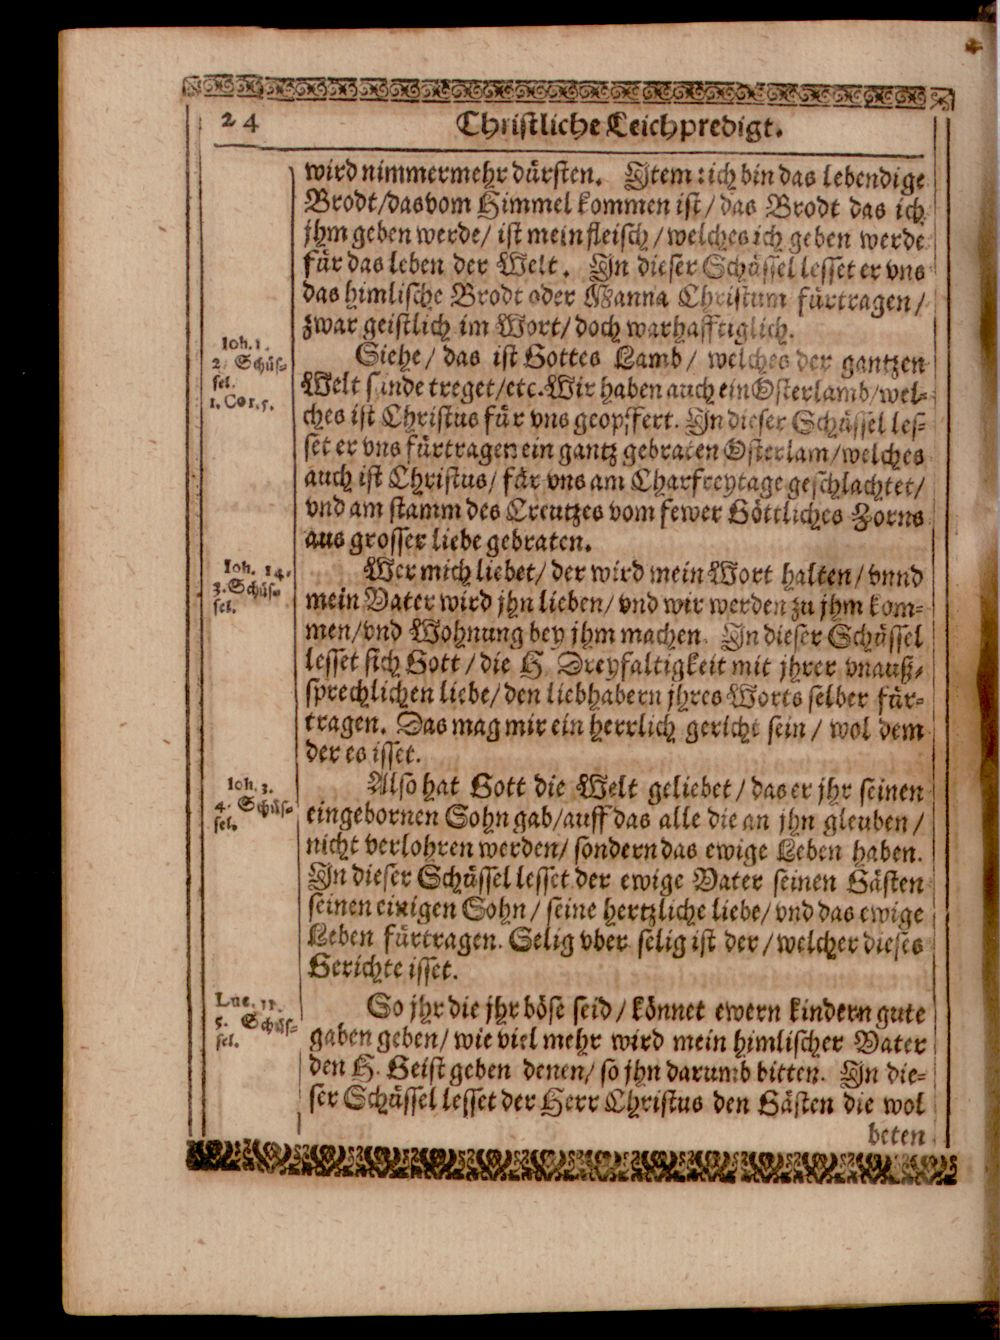 24 Christliche Leichpredigt.
wird nimmermehr dürsten. Item: ich bin das lebendige
Brodt/das vom Himmel kommen ist/ das Brodt das ich
jhm geben werde/ ist mein fleisch/welches ich geben werde
für das leben der Welt. In dieser Schüssel lesset er vns
das himlische Brodt oder Manna Christum fürtragen/
zwar geistlich im Wort/ doch warhafftiglich.
Ioh. 1.
2. Schüs-
sel.
1. Cor. 5.
Siehe/ das ist Gottes Lamb/ welches der gantzen
Welt sünde treget/etc. Wir haben auch ein Osterlamb/wel-
ches ist Christus für vns geopffert. In dieser Schüssel les-
set er vns fürtragen ein gantz gebraten Osterlam/welches
auch ist Christus/ für vns am Charfreytage geschlachtet/
vnd am stamm des Creutzes vom fewer Göttliches Zorns
aus grosser liebe gebraten.
Ioh. 14.
3. Schüs-
sel.
Wer mich liebet/ der wird mein Wort halten/ vnnd
mein Vater wird jhn lieben/ vnd wir werden zu jhm kom-
men/vnd Wohnung bey jhm machen. In dieser Schüssel
lesset sich Gott/ die H. Dreyfaltigkeit mit jhrer vnauß-
sprechlichen liebe/ den liebhabern jhres Worts selber für-
tragen. Das mag mir ein herrlich gericht sein/ wol dem
der es isset.
Ioh. 3.
4. Schüs-
sel.
Also hat Gott die Welt geliebet/ das er jhr seinen
eingebornen Sohn gab/auff das alle die an jhn gleuben/
nicht verlohren werden/ sondern das ewige Leben haben.
In dieser Schüssel lesset der ewige Vater seinen Gästen
seinen einigen Sohn/ seine hertzliche liebe/ vnd das ewige
Leben fürtragen. Selig vber selig ist der/ welcher dieses
Gerichte isset.
Luc. 11.
5. Schüs-
sel.
So jhr die jhr böse seid/ könnet ewern kindern gute
gaben geben/ wie viel mehr wird mein himlischer Vater
den H. Geist geben denen/ so jhn darumb bitten. In die-
ser Schüssel lesset der Herr Christus den Gästen die wol
beten